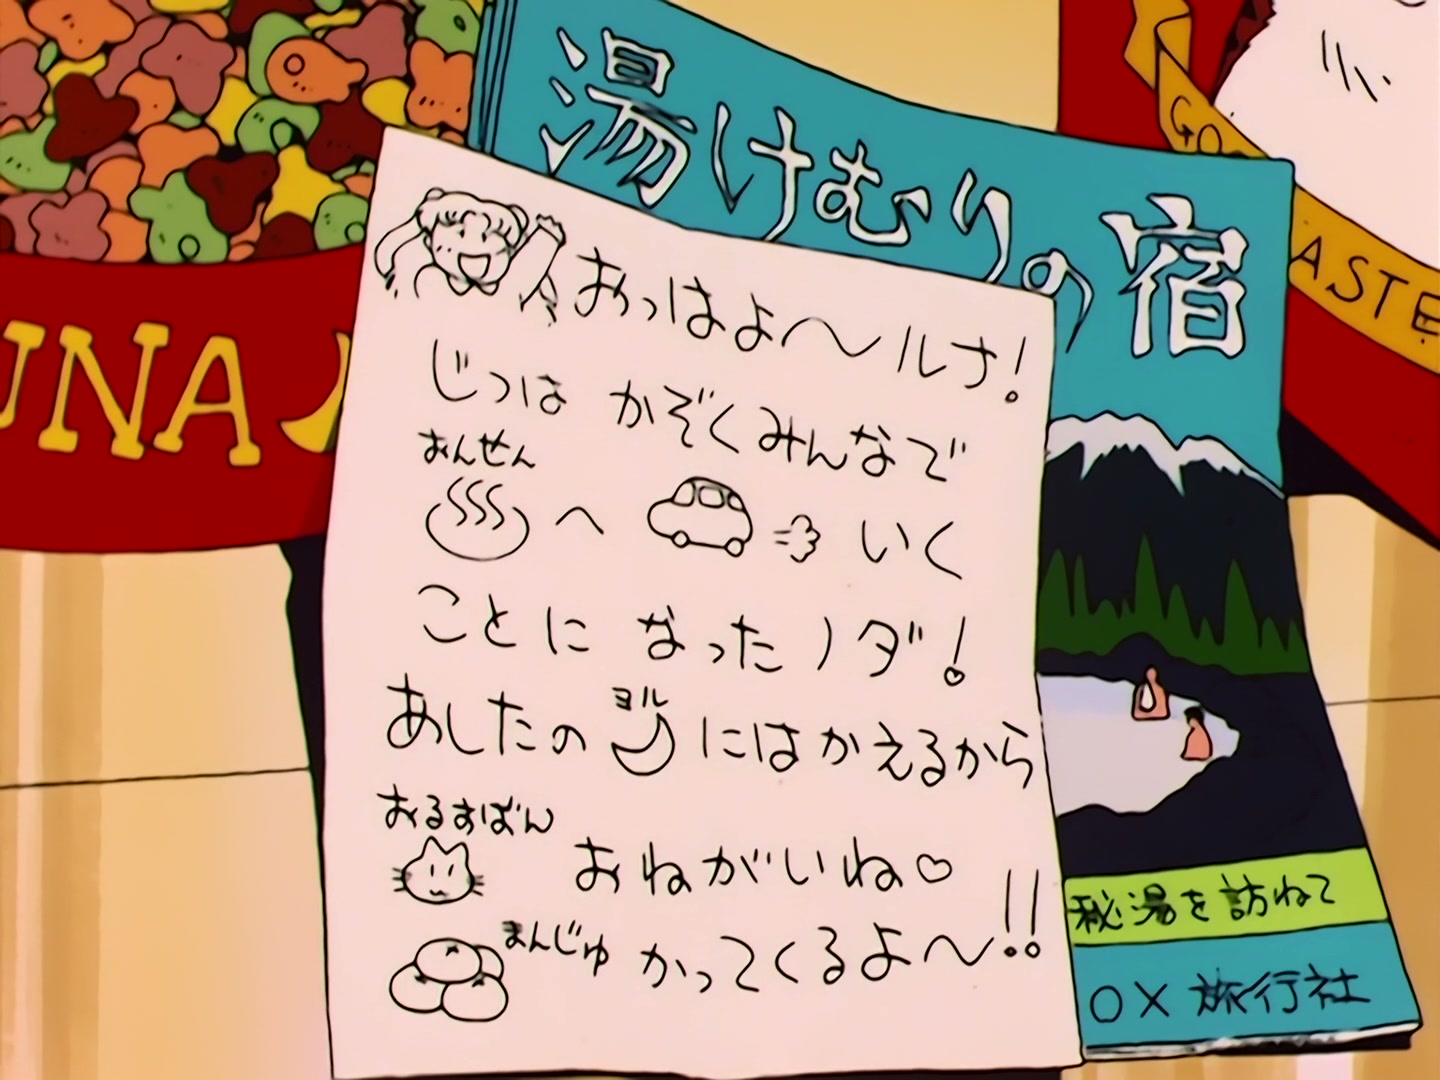 湯けむりの宿
おっはよ〜ルナ!
じつは かぞくみんなで
おんせん
へ いく
ことに なったノダ!
ヨル
あしたの にはかえるから
おるすばん
おねがいね♡
まんじゅ かってくるよ〜!!
秘湯を訪ねて
○×旅行社
UNA
GO
ASTE